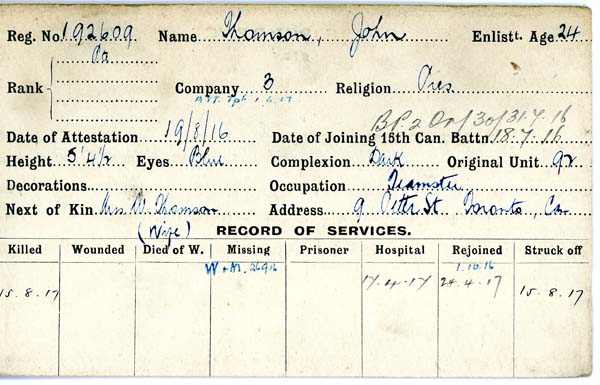 Reg. No. 192609 Name Thomson, John Enlistt. Age 24
Pte
Rank Company 3 Religion Pres
Att. 1.6.17
BP2 Or/30/31.7.16
Date of Attestation 19/8/16 Date of Joining 15th Can. Battn. 18.7.16
Height 5'4½ Eyes Blue Complexion Dark Original Unit 92
Decorations Occupation Teamster
Next of Kin Mrs W. Thomson Address 9 St. Toronto, Can
(Wife) RECORD OF SERVICES.
Killed Wounded Died of W. Missing Prisoner Hospital Rejoined Struck off
W+M. 26916 1.10.16
15.8.17 17.4.17 24.4.17 15.8.17